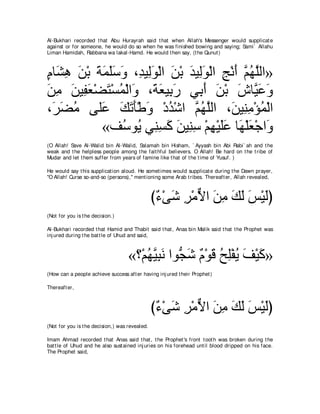 Al-Bukhari recorded that Abu Hurayrah said that when Allah's Messenger would supplicate
against or for someone, he would do so when he was finished bowing and saying; Sami` Allahu
Liman Hamidah, Rabbana wa lakal-Hamd. He would then say, (the Qunut)
«اللَّهُمَّ أَنْجِ الْوَلِيدَ بْنَ الْوَلِيدِ، وَسَلَمَةَ بْنَ هِشَامٍ
وَعَيَّاشَ بْنَ أَبِي رَبِيعَةَ، وَالْمُسْتَضْعَفِينَ مِنَ
الْمُؤْمِنِينَ، اللَّهُمَّ اشْدُدْ وَطْأَتَكَ عَلَى مُضَرَ،
وَاجْعَلْهَا عَلَيْهِمْ سِنِينَ كَسِنِي يُوسُفَ»
(O Allah! Save Al-Walid bin Al-Walid, Salamah bin Hisham, `Ayyash bin Abi Rabi`ah and the
weak and the helpless people among the faithful believers. O Allah! Be hard on the tribe of
Mudar and let them suffer from years of famine like that of the time of Yusuf. )
He would say this supplication aloud. He sometimes would supplicate during the Dawn prayer,
"O Allah! Curse so-and-so (persons),'' mentioning some Arab tribes. Thereafter, Allah revealed,
(لَيْسَ لَكَ مِنَ الاٌّمْرِ شَىْءٌ)
(Not for you is the decision.)
Al-Bukhari recorded that Hamid and Thabit said that, Anas bin Malik said that the Prophet was
injured during the battle of Uhud and said,
«كَيْفَ يُفْلِحُ قَوْمٌ شَجُّوا نَبِيَّهُمْ؟»
(How can a people achieve success after having injured their Prophet)
Thereafter,
(لَيْسَ لَكَ مِنَ الاٌّمْرِ شَىْءٌ)
(Not for you is the decision,) was revealed.
Imam Ahmad recorded that Anas said that, the Prophet's front tooth was broken during the
battle of Uhud and he also sustained injuries on his forehead until blood dripped on his face.
The Prophet said,